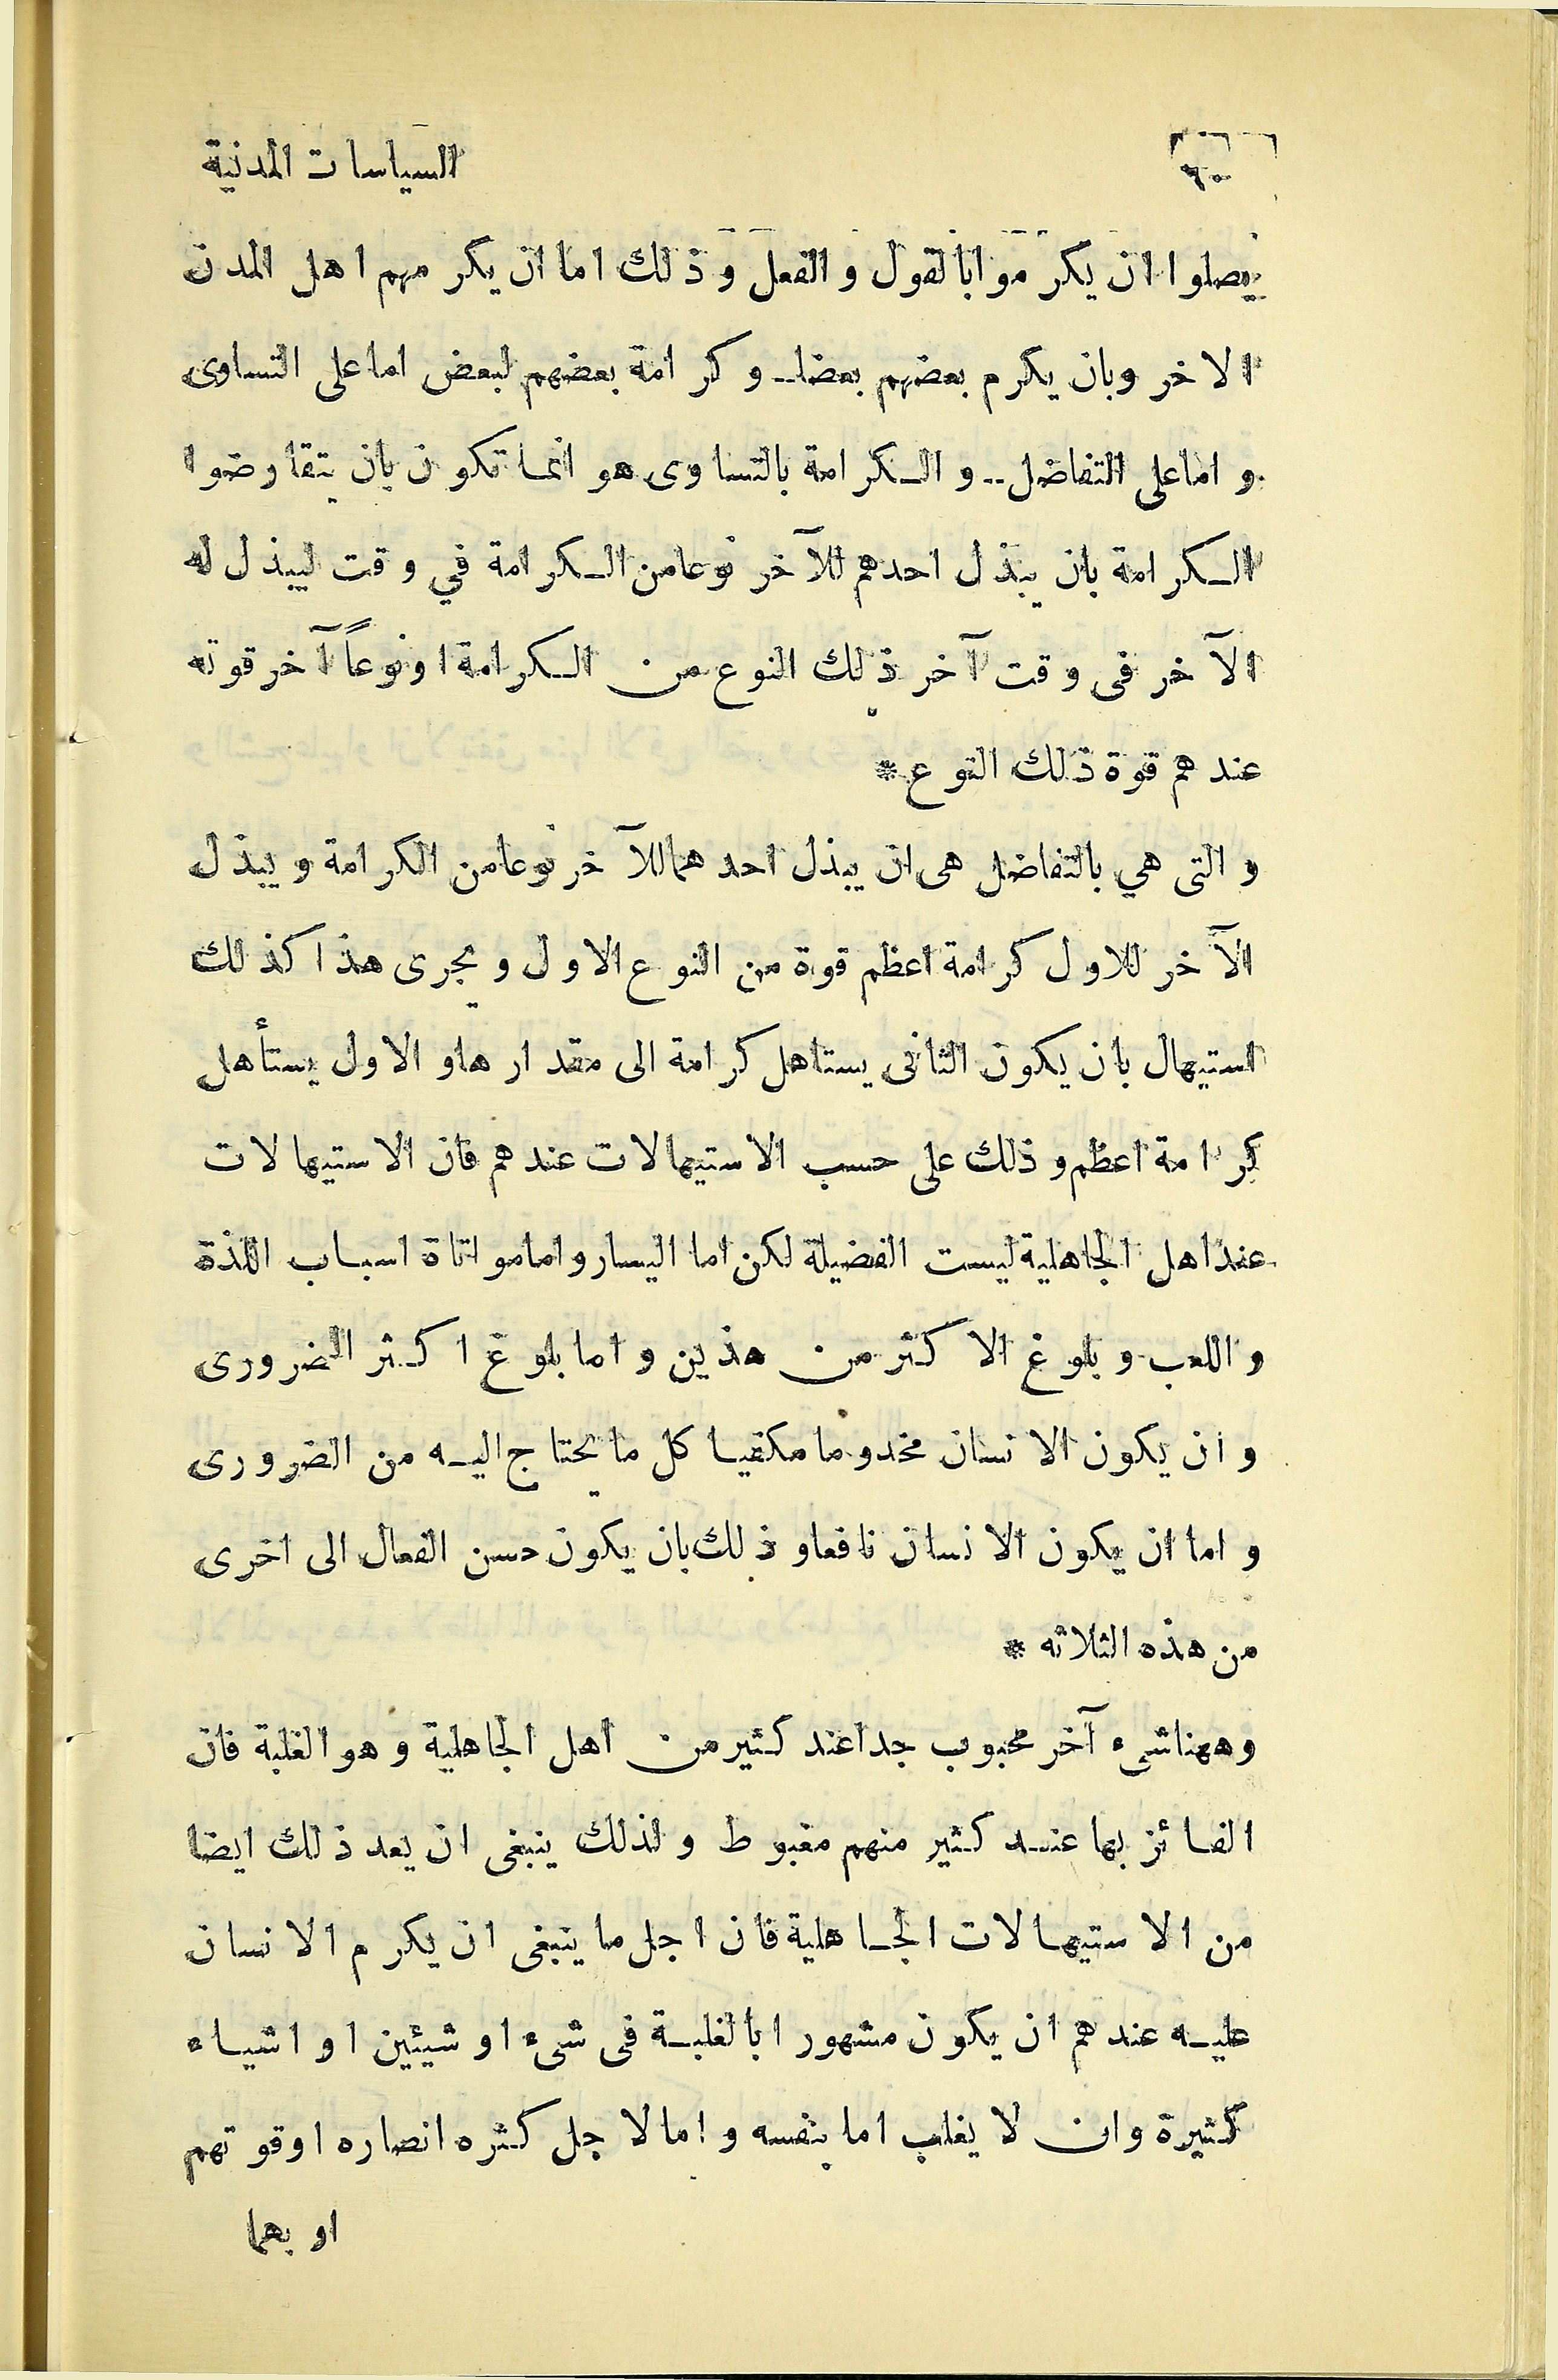 السياسات المدنية
يصلوا ان يكرموا بالقول والفعل وذلك اما ان يكرمهم اهل المدن
الاخر وبان يكرم بعضهم بعضا- وكرامة بعضهم لبعض اما على التساوى
واما على التفاضل- والكرامة بالتساوى هو انما تكون بان يتقارضوا
الكرامة بان يبذل احدهم للآخر نوعا من الكرامة في وقت ليبذل له
الآخر فى وقت آخر ذلك النوع من الكرامة او نوعاً آخر قوته
عندهم قوة ذلك النوع *
والتى هي بالتفاضل هى ان يبذل احدهما للآخر نوعا من الكرامة ويبذل
الآخر للاول كرامة اعظم قوة من النوع الاول ويجرى هذا كذلك
استيهال بان يكون الثانى يستاهل كرامة الى مقدارها والاول يستأهل
كرامة اعظم وذلك على حسب الاستيهالات عندهم فان الاستيهالات
عند اهل الجاهلية ليست الفضيلة لكن اما اليسار واما مواتاة اسباب اللذة
واللعب وبلوغ الاكثر من هذين واما بلوغ اكثر الضرورى
وان يكون الانسان مخدوما مكفيا كل ما يحتاج اليه من الضرورى
واما ان يكون الانسان نافعا وذلك بان يكون حسن الفعال الى اخرى
من هذه الثلاثه *
وههنا شىء آخر محبوب جدا عند كثير من اهل الجاهلية وهو الغلبة فان
الفائز بها عند كثير منهم مغبوط ولذلك ينبغى ان يعد ذلك ايضا
من الاستيهالات الجاهلية فان اجل ما ينبغى ان يكرم الانسان
عليه عندهم ان يكون مشهورا بالغلبة فى شىء او شيئين او اشياء
كثيرة وان لا يغلب اما بنفسه واما لاجل كثره انصاره او قوتهم
او بهما